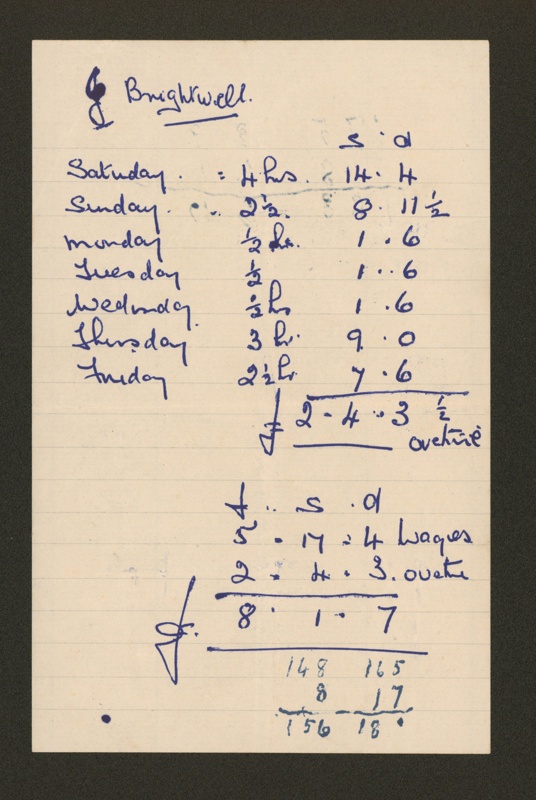 J Brightwell.
s . d
Saturday . = 4 hrs. 14 . 4
Sunday . 2½. 8 . 11½
Monday ½ hr. 1 . 6
Tuesday ½ 1 . . 6
Wednesday ½ hs 1 . 6
Thursday 3 hr. 9 . 0
Friday 2½ hr 7 . 6
£ 2 . 4 . 3 ½
overtime
£ . s . d
5 . 17 . 4 wages
2 . 4 . 3 . overtime
£. 8 . 1 . 7
148 165
8 17
156 181